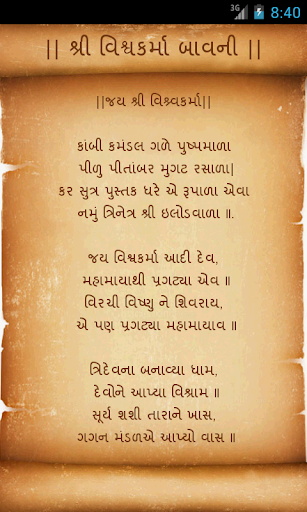 3G 8:40
|| શ્રી વિશ્વકર્મા બાવની ||
||જય શ્રી વિશ્ર્વકર્મા||
કાંબી કમંડલ ગળે પુષ્પમાળા
પીળુ પીતાંબર મુગટ રસાળા|
કર સુત્ર પુસ્તક ધરે એ રૂપાળા એવા
નમું ત્રિનેત્ર શ્રી ઇલોડવાળા ॥.
જય વિશ્વકર્મા આદી દેવ,
મહામાયાથી પ્રગટ્યા એવ ॥
વિરચી વિષ્ણુ ને શિવરાય,
એ પણ પ્રગટ્યા મહામાયાવ ॥
ત્રિદેવના બનાવ્યા ધામ,
દેવોને આપ્યા વિશ્રામ ॥
સૂર્ય શશી તારાને ખાસ,
ગગન મંડળએ આપ્યો વાસ ॥